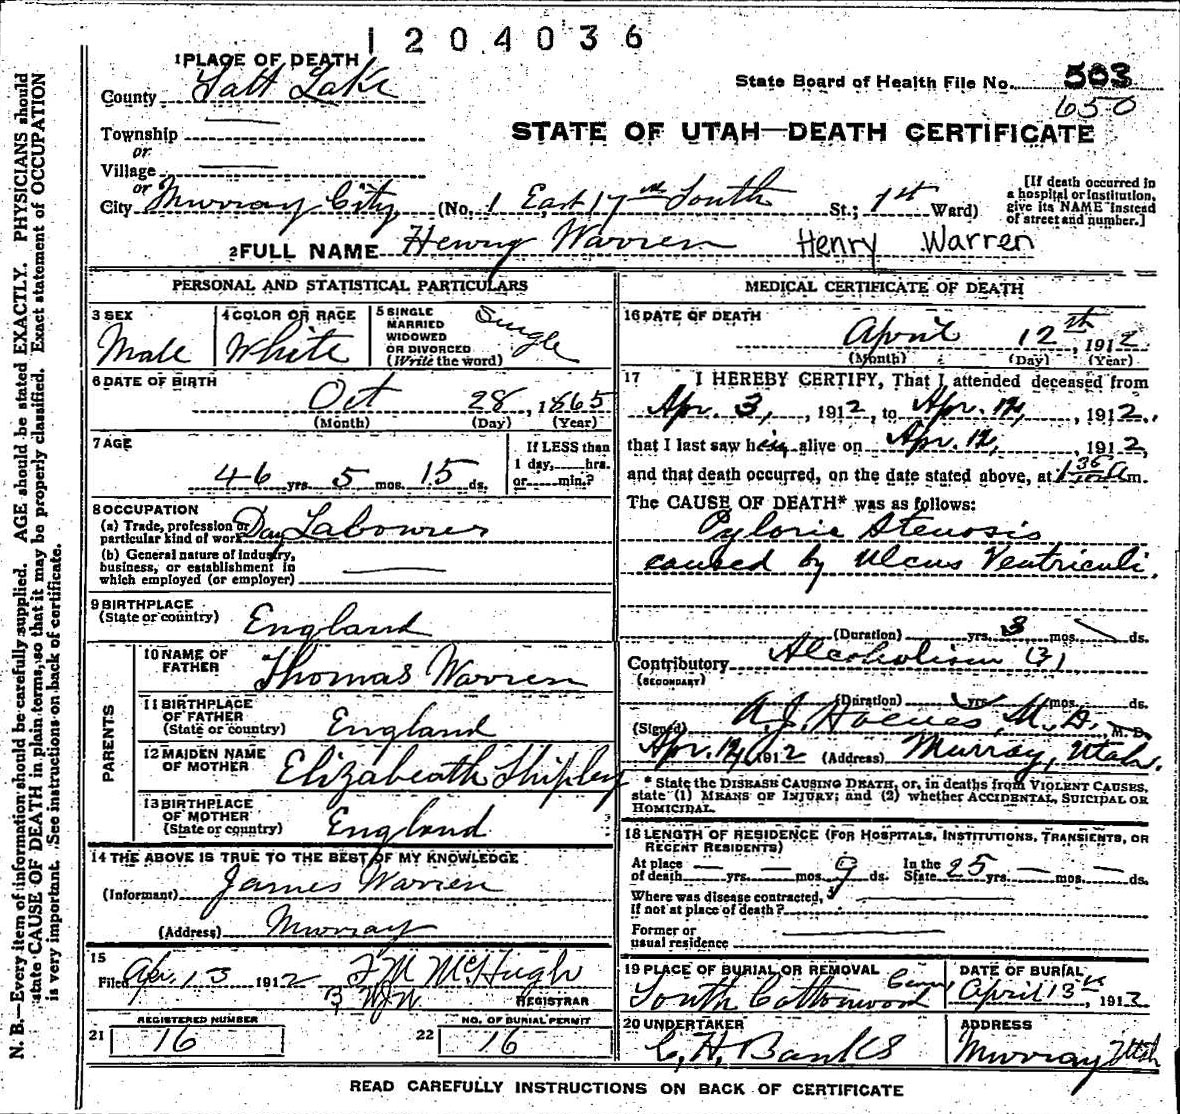 1204036
1 PLACE OF DEATH
County Salt Lake
State Board of Health File No. 503
650
Township
or
Village
or
STATE OF UTAH—DEATH CERTIFICATE
City Murray City (No. 1 East 17th South St.; 1st Ward)
[If death occurred in
a hospital or institution,
give its NAME instead
of street and number.]
2 FULL NAME Henry Warren Henry Warren
PERSONAL AND STATISTICAL PARTICULARS
3 SEX
Male
4 COLOR OR RACE
White
5 SINGLE
MARRIED
WIDOWED
OR DIVORCED
(Write the word)
Single
6 DATE OF BIRTH
Oct 28, 1865
(Month) (Day) (Year)
7 AGE
46 yrs. 5 mos. 15 ds.
If LESS than
1 day, hrs.
or min.?
8 OCCUPATION
(a) Trade, profession or
particular kind of work Day Labourer
(b) General nature of industry,
business, or establishment in
which employed (or employer)
9 BIRTHPLACE
(State or country) England
PARENTS
10 NAME OF
FATHER Thomas Warren
11 BIRTHPLACE
OF FATHER
(State or country) England
12 MAIDEN NAME
OF MOTHER Elizabeath Shipley
13 BIRTHPLACE
OF MOTHER
(State or country) England
14 THE ABOVE IS TRUE TO THE BEST OF MY KNOWLEDGE
(Informant) James Warren
(Address) Murray
15
Filed Apr. 13 1912 F M McHugh
REGISTRAR
REGISTERED NUMBER
21 16
NO. OF BURIAL PERMIT
22 16
MEDICAL CERTIFICATE OF DEATH
16 DATE OF DEATH
April 12th, 1912
(Month) (Day) (Year)
17 I HEREBY CERTIFY, That I attended deceased from
Apr. 3, 1912, to Apr. 12, 1912,
that I last saw him alive on Apr. 12, 1912,
and that death occurred, on the date stated above, at 1 35 a m.
The CAUSE OF DEATH* was as follows:
Pyloric Stenosis
caused by Ulcus Ventriculi.
(Duration) yrs. 3 mos. ds.
Contributory Alcoholism
(SECONDARY)
(Duration) yrs. mos. ds.
(Signed) A. J. M. D. M. D.
Apr. 12, 1912 (Address) Murray, Utah.
* State the DISEASE CAUSING DEATH, or, in deaths from VIOLENT CAUSES,
state (1) MEANS OF INJURY; and (2) whether ACCIDENTAL, SUICIDAL OR
HOMICIDAL.
18 LENGTH OF RESIDENCE (FOR HOSPITALS, INSTITUTIONS, TRANSIENTS, OR
RECENT RESIDENTS)
At place
of death yrs. mos. 9 ds. In the
State 25 yrs. mos. ds.
Where was disease contracted,
If not at place of death?
Former or
usual residence
19 PLACE OF BURIAL OR REMOVAL
South Cottonwood Cem.
DATE OF BURIAL
April 13th, 1912
20 UNDERTAKER
C. H. Banks
ADDRESS
Murray Utah
READ CAREFULLY INSTRUCTIONS ON BACK OF CERTIFICATE
N. B.—Every item of information should be carefully supplied. AGE should be stated EXACTLY. PHYSICIANS should
state CAUSE OF DEATH in plain terms, so that it may be properly classified. Exact statement of OCCUPATION
is very important. See instructions on back of certificate.